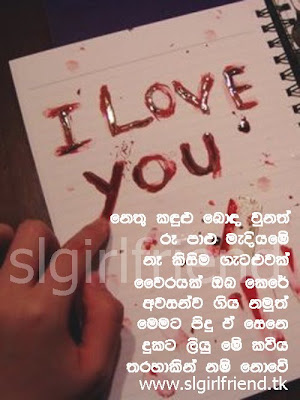 I LOVE
YOU!
නෙතු කඳුළු බොඳ වුනත්
රූ පාළු මැදියමේ
නෑ කිසිම හැටළුවක්
වෛරයක් ඔබ කෙරේ
අවසන්ව ගිය නමුත්
මෙමට පිදු ඒ සෙනෙ
දුකට ලියු මේ කවිය
තරහාකින් නම් නොවේ
slgirlfriend
www.slgirlfriend.tk